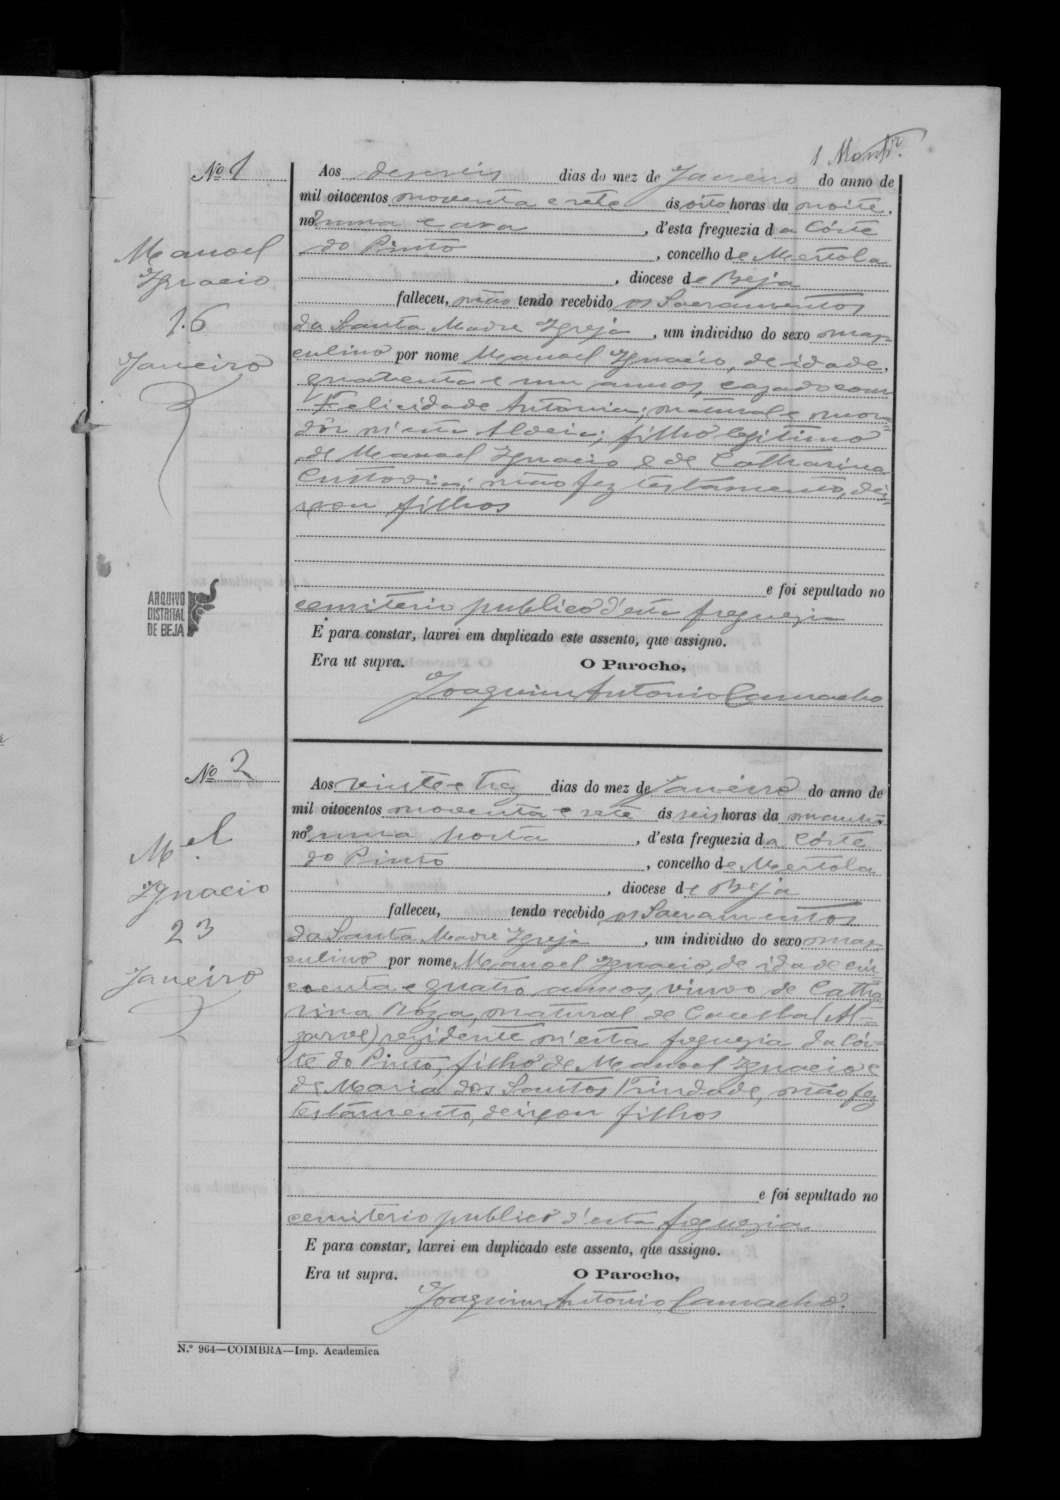 1 Montrº.
Nº 1
Aos deseseis dias do mez de Janeiro do anno de
mil oitocentos noventa e sete ás oito horas da noite.
n'uma casa, d'esta freguezia da Côrte
do Pinto, concelho de Mertola
, diocese de Beja
falleceu, não tendo recebido os Sacramentos
da Santa Madre Igreja, um individuo do sexo mas-
culino por nome Manoel Ignacio, de idade,
quarenta e um annos, cazado com
Felicidade Antonia; natural e mora-
dôr n'esta Aldeia; filho legitimo
de Manoel Ignacio e de Catharina
Custodia; não fez testamento, dei-
xou filhos
e foi sepultado no
cemiterio publico d'esta freguezia
E para constar, lavrei em duplicado este assento, que assigno.
Era ut supra. O Parocho,
Joaquim Antonio Camacho
Manoel
Ignacio
16
Janeiro
ARQUIVO
DISTRITAL
DE BEJA
Nº 2
Aos vinte e trez dias do mez de Janeiro do anno de
mil oitocentos noventa e sete ás seis horas da manhã.
n'uma horta, d'esta freguezia da Côrte
do Pinto, concelho de Mertola
, diocese de Beja
falleceu, tendo recebido os Sacramentos
da Santa Madre Igreja, um individuo do sexo mas-
culino por nome, Manoel Ignacio, de idade cin-
coenta e quatro annos, viuvo de Catha-
rina Roza, natural de Cacella (Al-
garve) rezidente n'esta freguezia da Côr-
te do Pinto, filho de Manoel Ignacio e
de Maria dos Santos Trindade, não fez
testamento, deixou filhos
e foi sepultado no
cemiterio publico d'esta freguezia
E para constar, lavrei em duplicado este assento, que assigno.
Era ut supra. O Parocho,
Joaquim Antonio Camacho.
Mel
Ignacio
23
Janeiro
N.º 964—COIMBRA—Imp. Academica